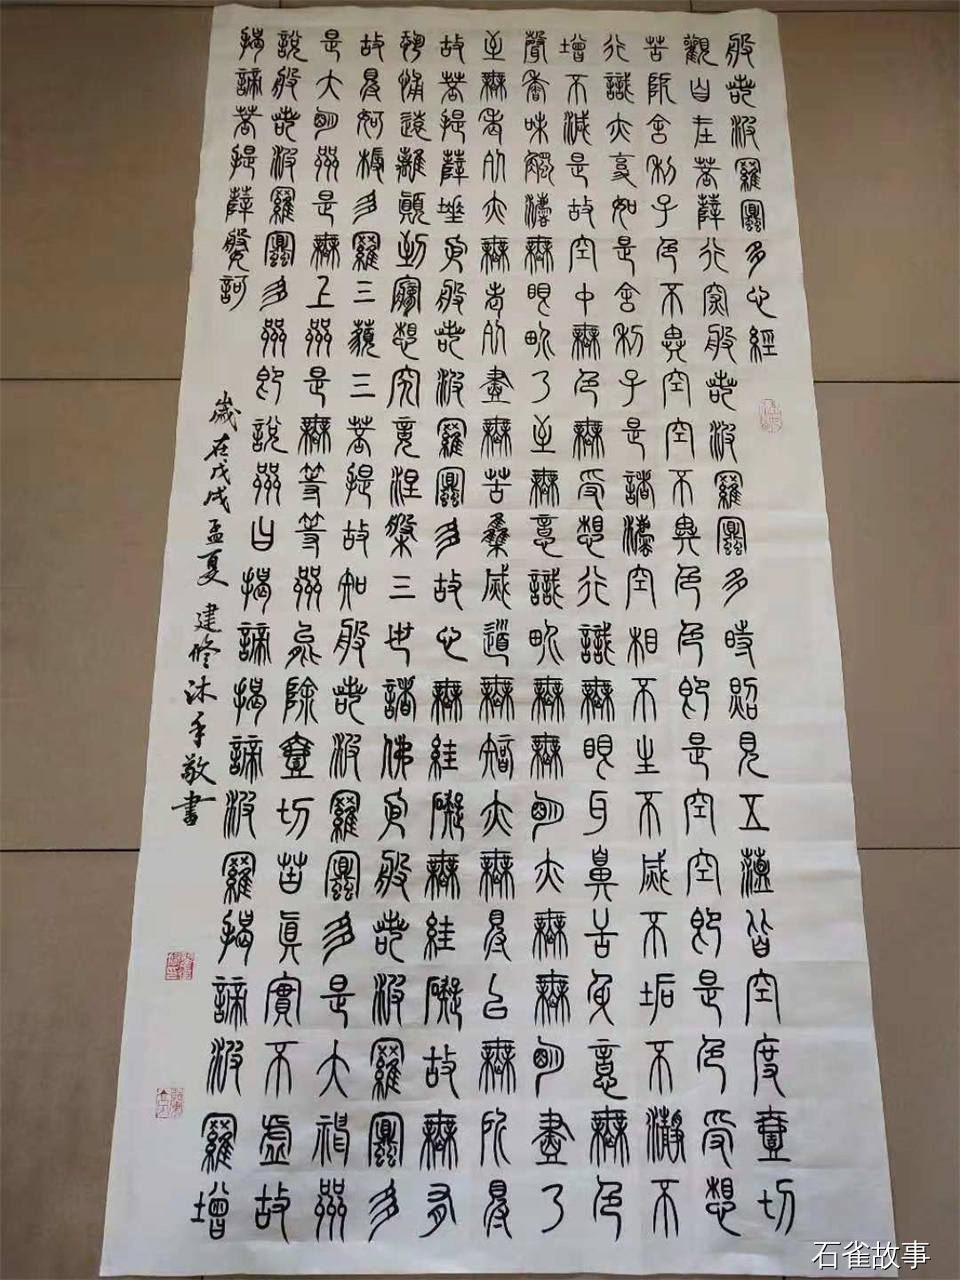 般若波羅蜜多心經
觀自在菩薩行深般若波羅蜜多時照見五蘊皆空度壹切
苦阨舍利子色不異空空不異色色即是空空即是色受想
行識亦復如是舍利子是諸法空相不生不滅不垢不淨不
增不減是故空中無色無受想行識無眼耳鼻舌身意無色
聲香味觸法無眼界乃至無意識界無無明亦無無明盡乃
至無老死亦無老死盡無苦集滅道無智亦無得以無所得
故菩提薩埵依般若波羅蜜多故心無絓礙無絓礙故無有
恐怖遠離顛倒夢想究竟涅槃三世諸佛依般若波羅蜜多
故得阿耨多羅三藐三菩提故知般若波羅蜜多是大神咒
是大明咒是無上咒是無等等咒能除壹切苦真實不虛故
說般若波羅蜜多咒即說咒曰揭諦揭諦波羅揭諦波羅增
揭諦菩提薩婆訶
歲在戊戌孟夏建修沐手敬書
石雀故事